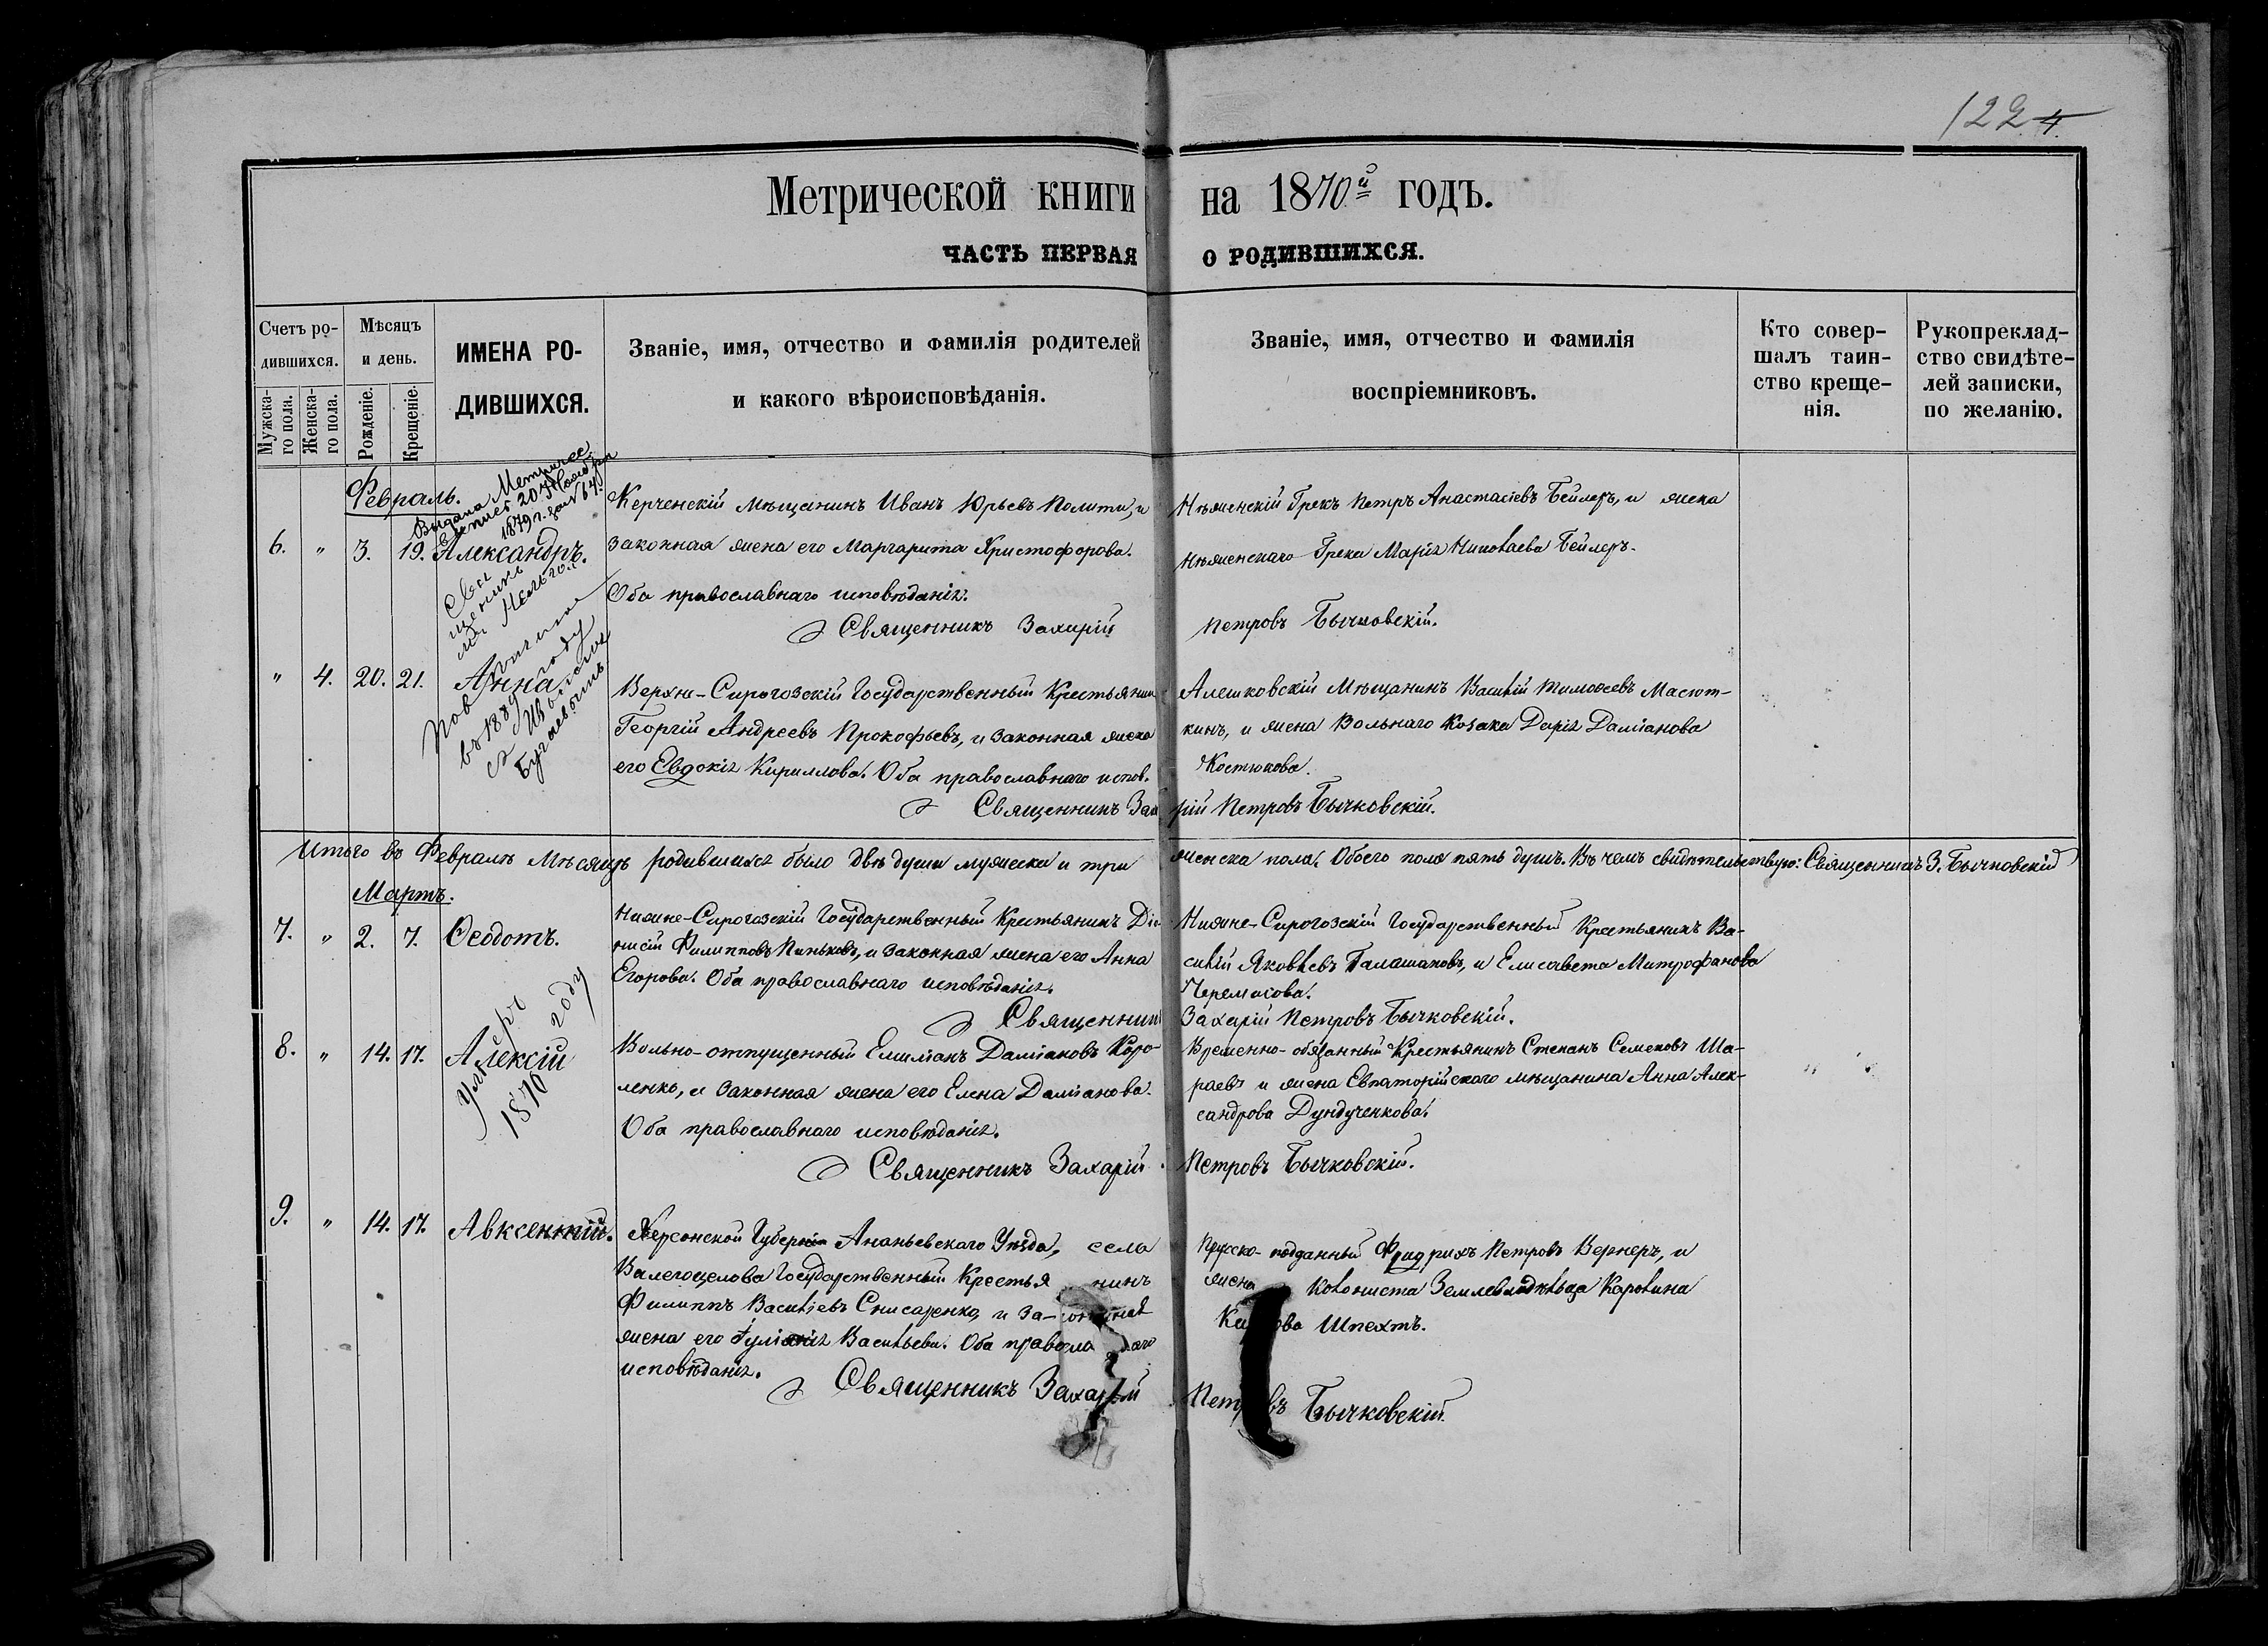 1224.
Метрической книги на 1870й годъ.
ЧАСТЬ ПЕРВАЯ О РОДИВШИХСЯ.
Счетъ ро-
дившихся.
Мужска-
го пола.
Женска-
го пола.
Мѣсяцъ
и день.
Рожденіе.
Крещеніе.
ИМЕНА РО-
ДИВШИХСЯ.
Званіе, имя, отчество и фамилія родителей
и какого вѣроисповѣданія.
Званіе, имя, отчество и фамилія
воспріемниковъ.
Кто совер-
шалъ таин-
ство креще-
нія.
Рукопреклад-
ство свидѣте-
лей записки,
по желанію.
Февраль.
Выдана Метричес.
1879 г. за № 64
6. " 3. 19. Александръ.
Свя
щенникъ
Керченскій Мѣщанинъ Иванъ Юрьевъ Полити, и
законная жена его Маргарита Христофорова.
Оба православнаго исповѣданія.
Нѣженскій Грекъ Петръ Анастасіевъ Бейлеръ, и жена
Нѣженскаго Грека Марія Николаева Бейлеръ.
Священникъ Захарій Петровъ Бычковскій.
" 4. 20. 21. Анна.
Повѣнчана
въ 1889 году
съ
Верхне-Сирогозскій Государственный Крестьянин
Георгій Андреевъ Прокофьевъ, и законная жена
его Евдокія Кириллова. Оба православнаго испов.
Алешковскій Мѣщанинъ Василій Тимоѳеевъ Масют-
кинъ, и жена Вольнаго Козака Дарія Даміанова
Костюкова.
Священникъ Захарій Петровъ Бычковскій.
Итого въ Февралѣ Мѣсяцѣ родившихся было двѣ души мужеска и три женска пола. Обоего пола пять душъ. Въ чемъ свидѣтельствую: Священникъ З. Бычковскій
Мартъ.
7. " 2. 7. Ѳеодотъ.
Нижне-Сирогозскій Государственный Крестьянинъ Діо-
нисій Филипповъ Паньковъ, и законная жена его Анна
Егорова. Оба православнаго исповѣданія.
Нижне-Сирогозскій Государственный Крестьянинъ Ва-
силій Яковлевъ Талашаковъ, и Елисавета Митрофанова
Священник Захарій Петровъ Бычковскій.
8. " 14. 17. Алексій
Умеръ
1870 году
Вольно-отпущенный Емиліанъ Даміановъ Коро-
ленко, и законная жена его Елена Даміанова.
Оба православнаго исповѣданія.
Временно-обязанный Крестьянинъ Степанъ Семеновъ Ша-
раевъ и жена Евпаторійскаго мѣщанина Анна Алек-
сандрова Дундученкова.
Священникъ Захарій Петровъ Бычковскій.
9. " 14. 17. Авксентій.
Херсонской Губерніи Ананьевскаго Уѣзда, села
Валегоцелова Государственный Крестья нинъ
Филиппъ Василіевъ Снисаренко, и за-конная
жена его Іуліанія Васильева. Оба правосла наго
исповѣданія.
Прусско-подданный Фридрихъ Петровъ Вернеръ, и
жена колониста Землевладѣльца Каролина
Шпехтъ.
Священникъ Захарій Петровъ Бычковскій.